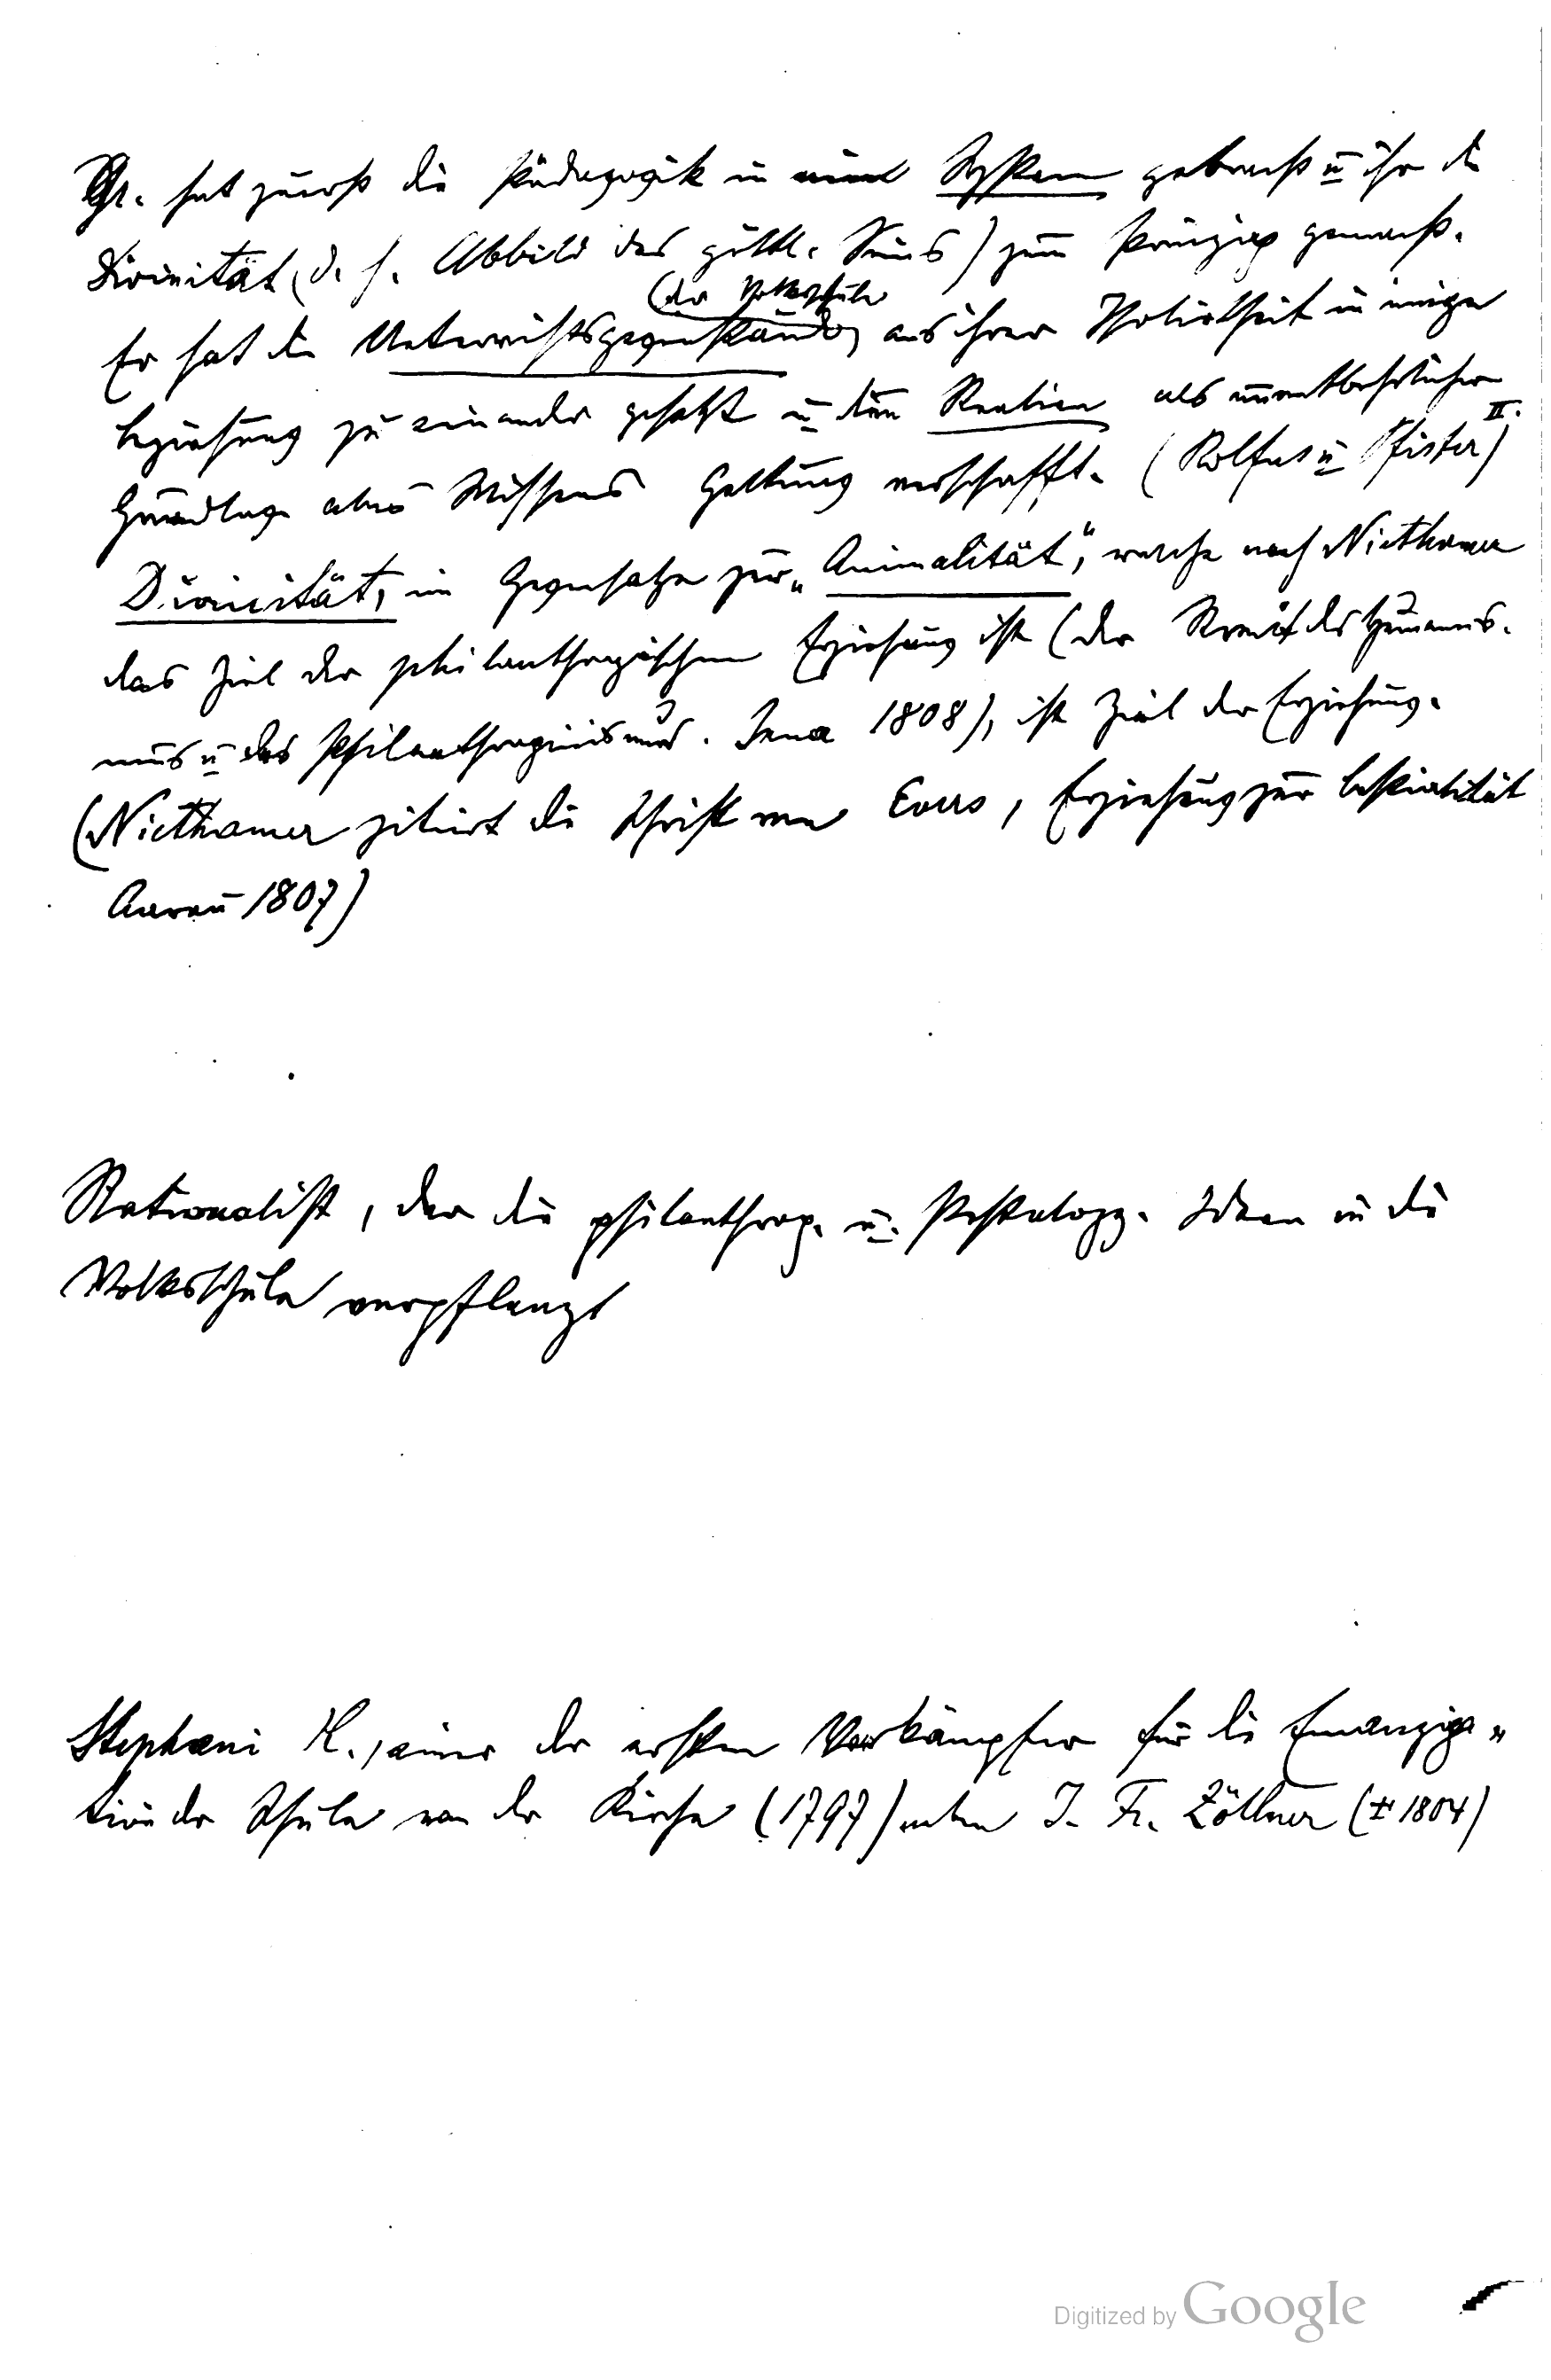 Gr. hat zuerst die Pädagogik in ein System gebracht u ihr die
Divinität (d. h. Abbild des göttl. Seins) zum Prinzip gemacht.
(der Volksschule)
Er hat die Unterrichtsgegenstände aus ihrer Isoliertheit in innige
Beziehung zu einander gesetzt u den Realien als unentbehrlicher
Grundlage alles Wissens Geltung verschafft. (Rolfus u Pfister) II.
Divinität, im Gegensatze zur „Animalität“, welche nach Niethamer
das Ziel der philanthropischen Erziehung ist (der Streit des Humanis-
mus u des Philanthropinismus. Jena 1808), ist Ziel der Erziehung.
(Niethamer zitiert die Schrift von Evers, Erziehung zur Bestialität
Aarau 1807)
Rationalist, der die philanthrop. u. Pestalozz. Ideen in die
Volksschule verpflanzt
Stephani H., einer der ersten Vorkämpfer für die Emanzipa-
tion der Schule von der Kirche (1797) neben J. Fr. Zöllner (+ 1804)
Digitized by Google